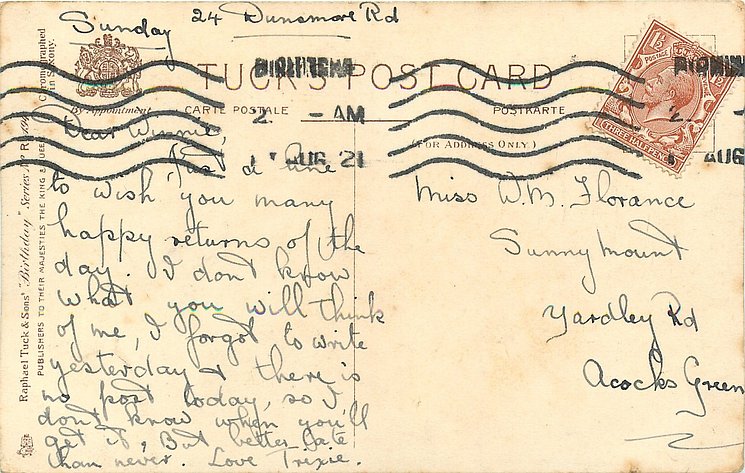 Sunday 24 Dunsmore Rd
TUCK'S POST CARD
By Appointment.
CARTE POSTALE
POSTKARTE
(FOR ADDRESS ONLY)
2 - AM
AUG 21
AUG
POSTAGE
THREE HALFPENCE
Dear Winnie,
Just a line
to wish you many
happy returns of the
day. I don't know
what you will think
of me, I forgot to write
yesterday & there is
no post today, so I
don't know when you'll
get it, But better late
than never. Love Trixie.
Miss W.M. Florance
Sunny mount
Yardley Rd
Acocks Green
Raphael Tuck & Sons' "Birthday" Series
PUBLISHERS TO THEIR MAJESTIES THE KING & QUEEN
Chromographed
in Saxony.